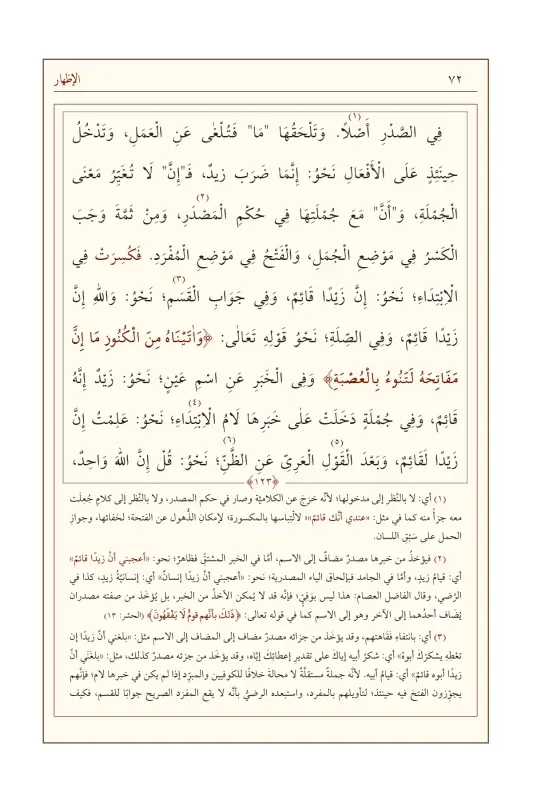 ٧٢ الإظهار
فِي الصَّدْرِ أَصْلًا.(١) وَتَلْحَقُهَا "مَا" فَتُلْغٰى عَنِ الْعَمَلِ، وَتَدْخُلُ
حِينَئِذٍ عَلَى الْأَفْعَالِ نَحْوُ: إِنَّمَا ضَرَبَ زيدٌ، فَـ"إِنَّ" لَا تُغَيِّرُ مَعْنَى
الْجُمْلَةِ، وَ"أَنَّ" مَعَ جُمْلَتِهَا فِي حُكْمِ الْمَصْدَرِ،(٢) وَمِنْ ثَمَّةَ وَجَبَ
الْكَسْرُ فِي مَوْضِعِ الْجُمَلِ، وَالْفَتْحُ فِي مَوْضِعِ الْمُفْرَدِ. فَكُسِرَتْ فِي
الْاِبْتِدَاءِ؛ نَحْوُ: إِنَّ زَيْدًا قَائِمٌ، وَفِي جَوَابِ الْقَسَمِ؛(٣) نَحْوُ: وَاللهِ إِنَّ
زَيْدًا قَائِمٌ، وَفِي الصِّلَةِ؛ نَحْوُ قَوْلِهِ تَعَالٰى: ﴿وَاٰتَيْنَاهُ مِنَ الْكُنُوزِ مَا إِنَّ
مَفَاتِحَهُ لَتَنُوءُ بِالْعُصْبَةِ﴾ وَفِي الْخَبَرِ عَنِ اسْمِ عَيْنٍ؛ نَحْوُ: زَيْدٌ إِنَّهُ
قَائِمٌ، وَفِي جُمْلَةٍ دَخَلَتْ عَلٰى خَبَرِهَا لَامُ الْاِبْتِدَاءِ؛(٤) نَحْوُ: عَلِمْتُ إِنَّ
زَيْدًا لَقَائِمٌ، وَبَعْدَ الْقَوْلِ(٥) الْعَرِيِّ عَنِ الظَّنِّ؛(٦) نَحْوُ: قُلْ إِنَّ اللهَ وَاحِدٌ،
﴿١٢٣﴾
(١) أي: لا بالنَّظر إلى مدخولها؛ لأنَّه خرَج عن الكلاميَّة وصار في حكم المصدر، ولا بالنَّظر إلى كلامٍ جُعِلَت
معه جزأً منه كما في مثل: «عندي أنَّك قائمٌ»؛ لالْتِباسها بالمكسورة؛ لإمكان الذُّهول عن الفتحة؛ لخفائها، وجواز
الحمل على سَبْقِ اللسان.
(٢) فيؤخذُ من خبرها مصدرٌ مضافٌ إلى الاسم، أمَّا في الخبر المشتقِّ فظاهرٌ؛ نحو: «أعجبني أنَّ زيدًا قائمٌ»
أي: قيامُ زيدٍ، وأمَّا في الجامد فبإلحاق الياء المصدرية؛ نحو: «أعجبني أنَّ زيدًا إنسانٌ» أي: إنسانيَّةُ زيدٍ، كذا في
الرَّضي، وقال الفاضل العصام: هذا ليس بوَفِيٍّ؛ فإنَّه قد لا يُمكن الأخذُ من الخبر، بل يُؤخَذ من صفته مصدران
يُضاف أحدُهما إلى الآخر وهو إلى الاسم كما في قوله تعالى: ﴿ذَلِكَ بِأَنَّهُم قَومٌ لَا يَفْقَهُونَ﴾ (الحشر: ١٣)
(٣) أي: بانتفاءِ فَقَاهتهم، وقد يؤخَذ من جزائه مصدرٌ مضاف إلى المضاف إلى الاسم مثل: «بلغني أنَّ زيدًا إن
تعْطِهِ يشكرْكَ أبوهُ» أي: شكرُ أبيه إياكَ على تقدير إعطائِكَ إيَّاه، وقد يؤخَذ من جزئه مصدر كذلك، مثل: «بلغَني أنَّ
زيدًا أبوه قائمٌ» أي: قيامُ أبيه. لأنَّه جملةٌ مستقلَّةٌ لا محالةَ خلافًا للكوفيين والمبرِّد إذا لم يكن في خبرها لام؛ فإنَّهم
يجوِّزون الفتحَ فيه حينئذٍ؛ لتأويلهم بالمفرد، واستبعده الرضيُّ بأنَّه لا يقع المفرَد الصريح جوابًا للقسم، فكيف